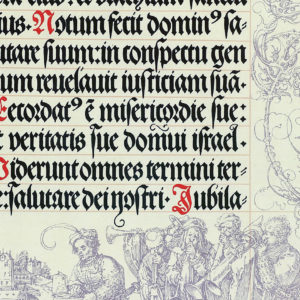 ius. Notum fecit dominꝰ sa-
utare suum: in conspectu gen
um reuelauit iusticiam suã.
Recordatꝰ ẽ misericordie sue:
t veritatis sue domui israel.
Viderunt omnes termini ter-
e: salutare dei nostri. Jubila-